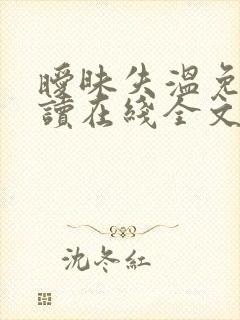 曖昧失溫免
讀在綫全文
沈冬紅